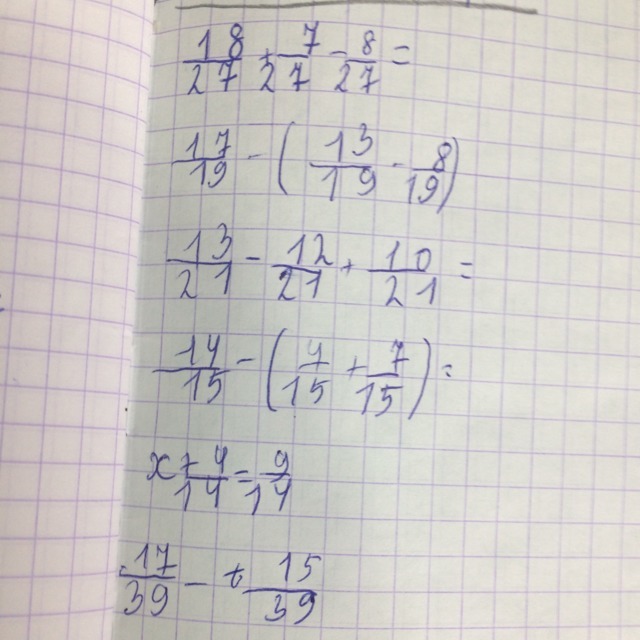 18/27 + 7/27 - 8/27 =
17/19 - (13/19 - 8/19)
13/21 - 12/21 + 10/21 =
14/15 - (4/15 + 7/15) =
x + 4/14 = 9/14
17/39 - t 15/39